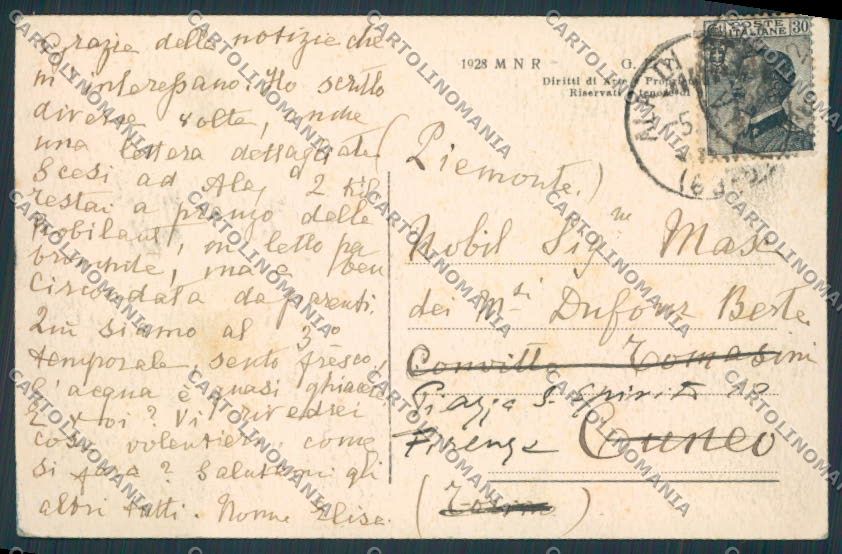 Grazie delle notizie che
m'interessano. Ho scritto
diverse volte, anche
una lettera dettagliata
Scesi ad Ala, 2 Kil.
restai a pranzo dalle
Nobilant, in letto pa
bronchite, ma è ben
circondata da parenti.
Qui siamo al 3º
temporale sento fresco,
l'acqua è quasi ghiaccia
E voi? Vi rivedrei
così volentieri. come
si farà? Salutami gli
altri tutti. Nonna Elisa.
1928 M N R
G.
Diritti di Arte e Proprietà
Riservati a tenore di
POSTE ITALIANE 30
(Piemonte.)
Nobil Sigⁿᵉ Max
dei Mˢⁱ Dufour Berte
Convitto Tomasini
Piazza S. Spirito 12
Firenze Cuneo
(Torino)
CARTOLINOMANIA